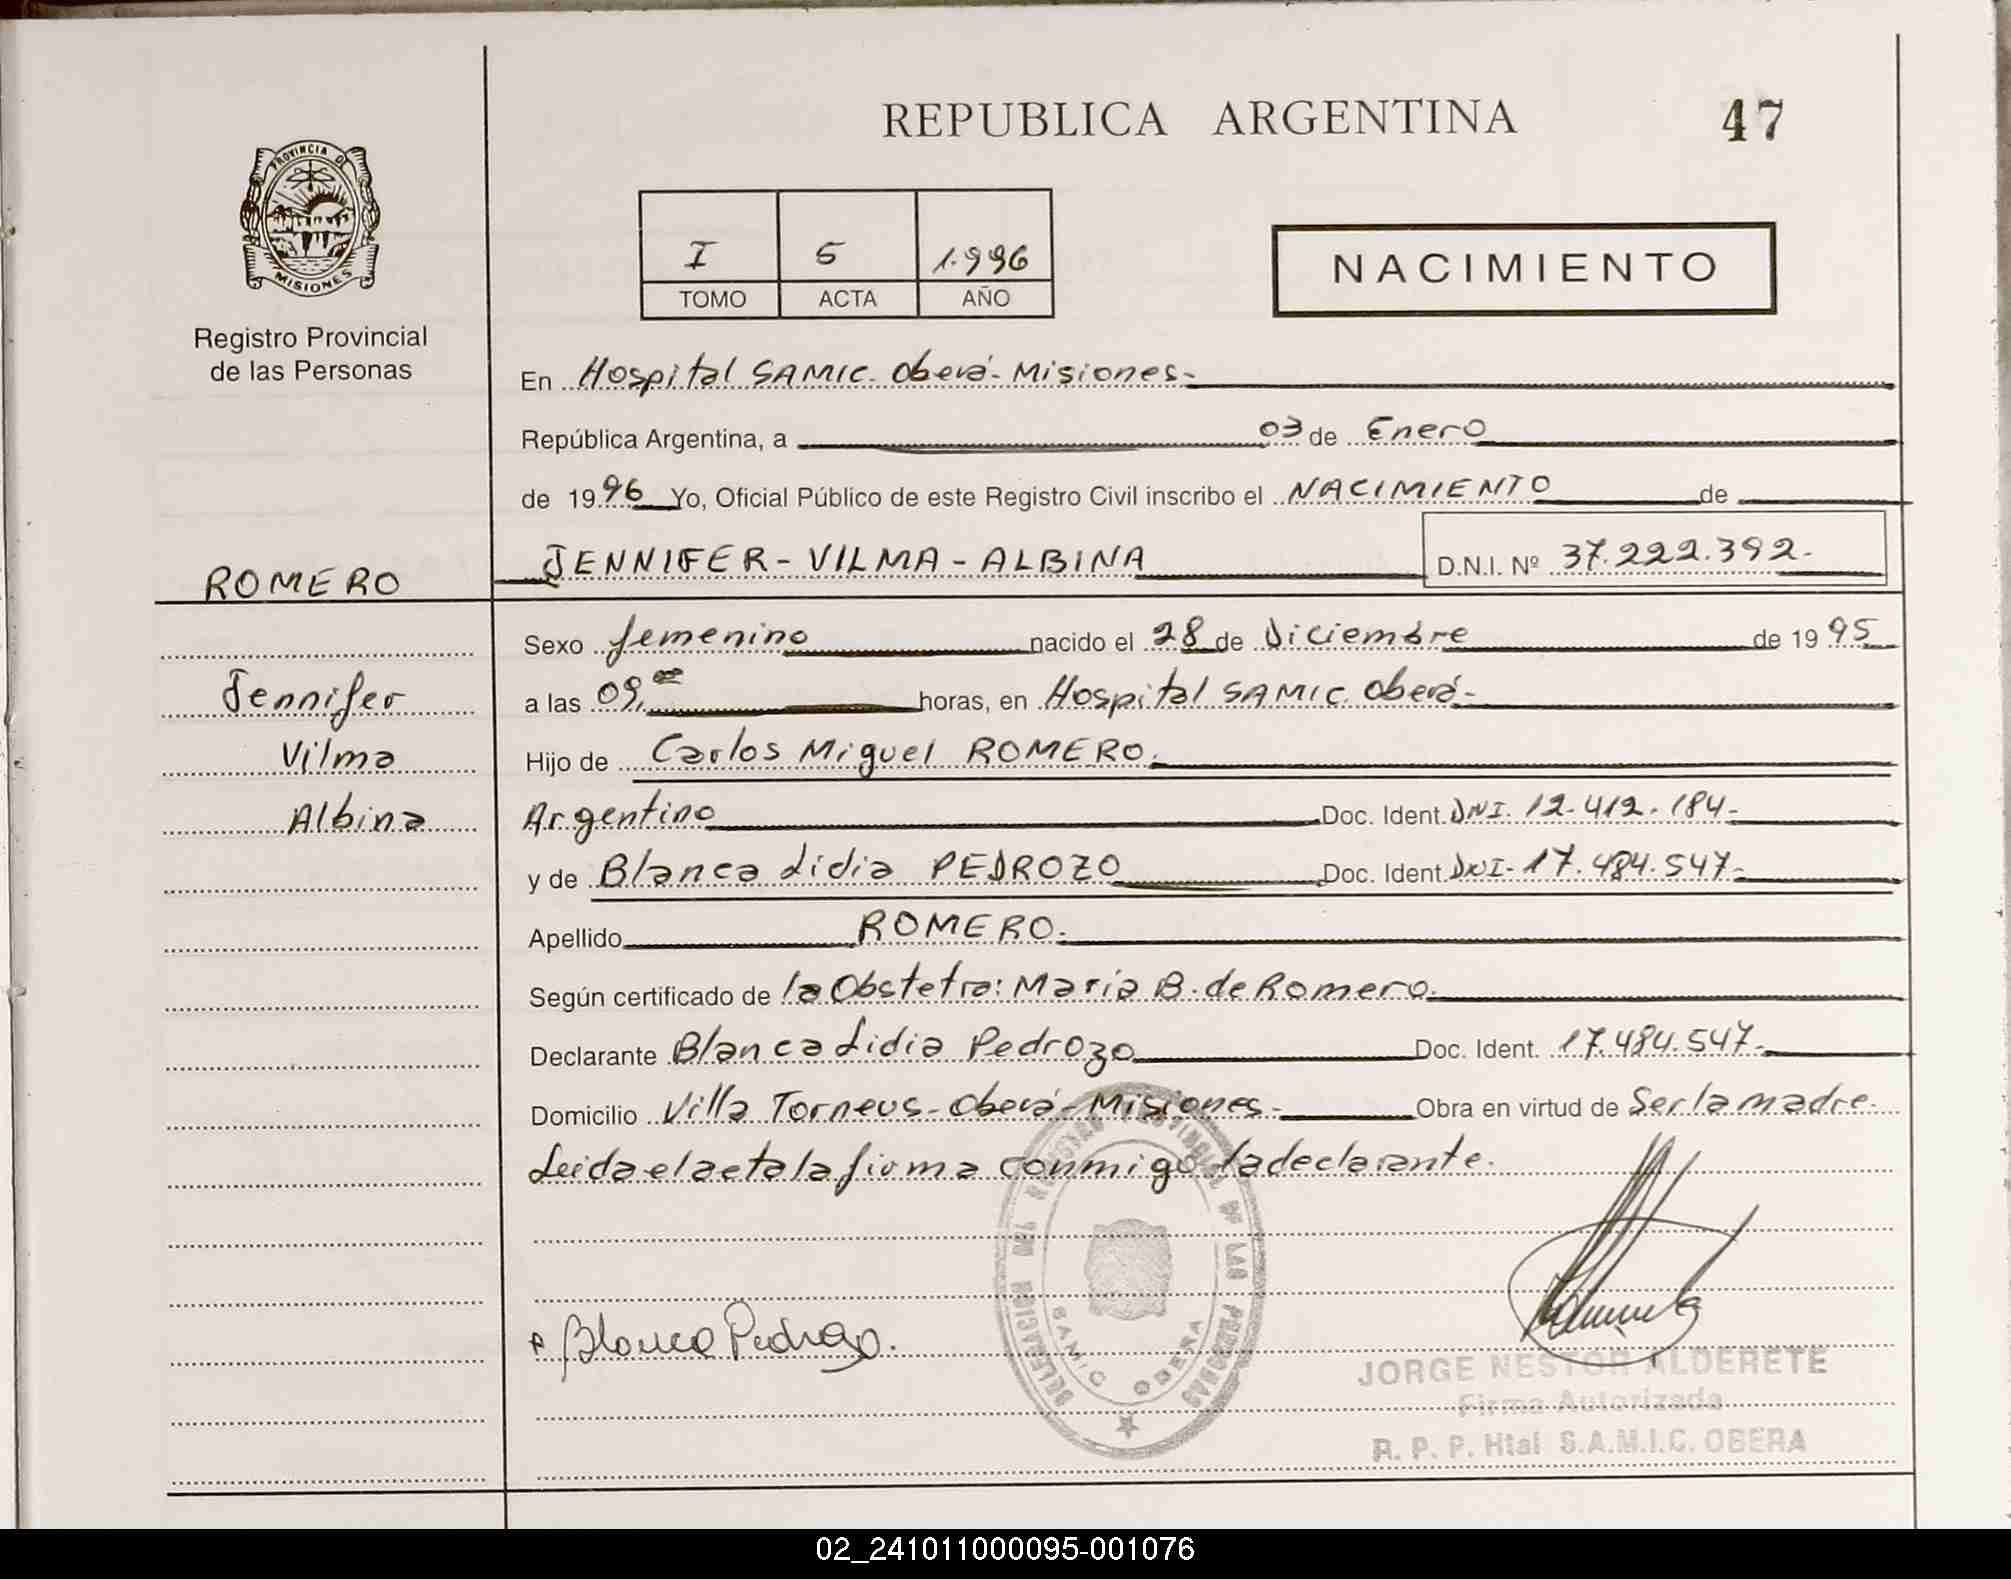 REPUBLICA ARGENTINA
47
PROVINCIA DE
MISIONES
Registro Provincial
de las Personas
I 5 1.996
TOMO ACTA AÑO
NACIMIENTO
En Hospital SAMIC. Oberá- Misiones-
República Argentina, a 03 de Enero
de 1996 Yo, Oficial Público de este Registro Civil inscribo el NACIMIENTO de
ROMERO
JENNIFER - VILMA - ALBINA D.N.I. Nº 37.222.392.-
Sexo femenino nacido el 28 de Diciembre de 1995
Jennifer
a las 09, horas, en Hospital SAMIC. Oberá-
Vilma
Hijo de Carlos Miguel ROMERO.
Albina
Argentino Doc. Ident. DNI. 12.412.184-
y de Blanca Lidia PEDROZO Doc. Ident. DNI- 17.484.547-
Apellido ROMERO.
Según certificado de la Obstetra: Maria B. de Romero.
Declarante Blanca Lidia Pedrozo Doc. Ident. 17.484.547-
Domicilio Villa Torneus - Oberá- Misiones- Obra en virtud de Ser la madre.
Leida el acta la firma conmigo la declarante.
Blanca Pedrozo.
DELEGACION DEL REGISTRO PROVINCIAL DE LAS PERSONAS
SAMIC OBERA
JORGE NESTOR ALDERETE
Firma Autorizada
R. P. P. Htal S.A.M.I.C. OBERA
02_241011000095-001076